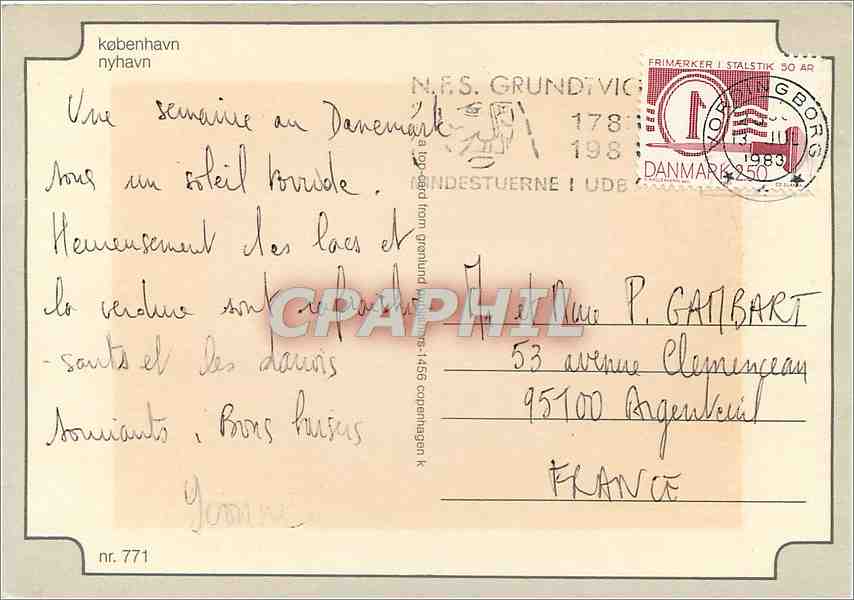 københavn
nyhavn
Une semaine au Danemark
sous un soleil torride.
Heureusement les lacs et
la verdure sont rafraichis
-sants et les danois
souriants. Bons baisers
Yvonne
nr. 771
a top-card from grønlund
rs-1456 copenhagen k
N.F.S. GRUNDTVIG
178
198
MINDESTUERNE I UDB
FRIMÆRKER I STALSTIK 50 ÅR
1
DANMARK 250
VORDINGBORG
13 JUL
1983
M et Mme P. GAMBART
53 avenue Clemenceau
95100 Argenteuil
FRANCE
CPAPHIL